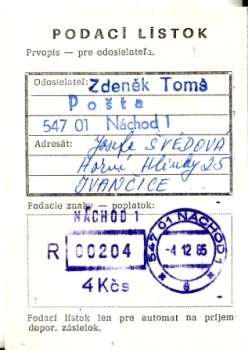 PODACÍ LÍSTOK
Prvopis — pre odosielateľa.
Odosielateľ: Zdeněk Tomš
Pošta
547 01 Náchod 1
Adresát: Josefa ŠVÉDOVÁ
Horní Hlinky 25
IVANČICE
Podacie znaky — poplatok:
NÁCHOD 1
R 00204
4 Kčs
547 01 NÁCHOD 1
-4.12.85
Podací lístok len pre automat na príjem
dopor. zásielok.